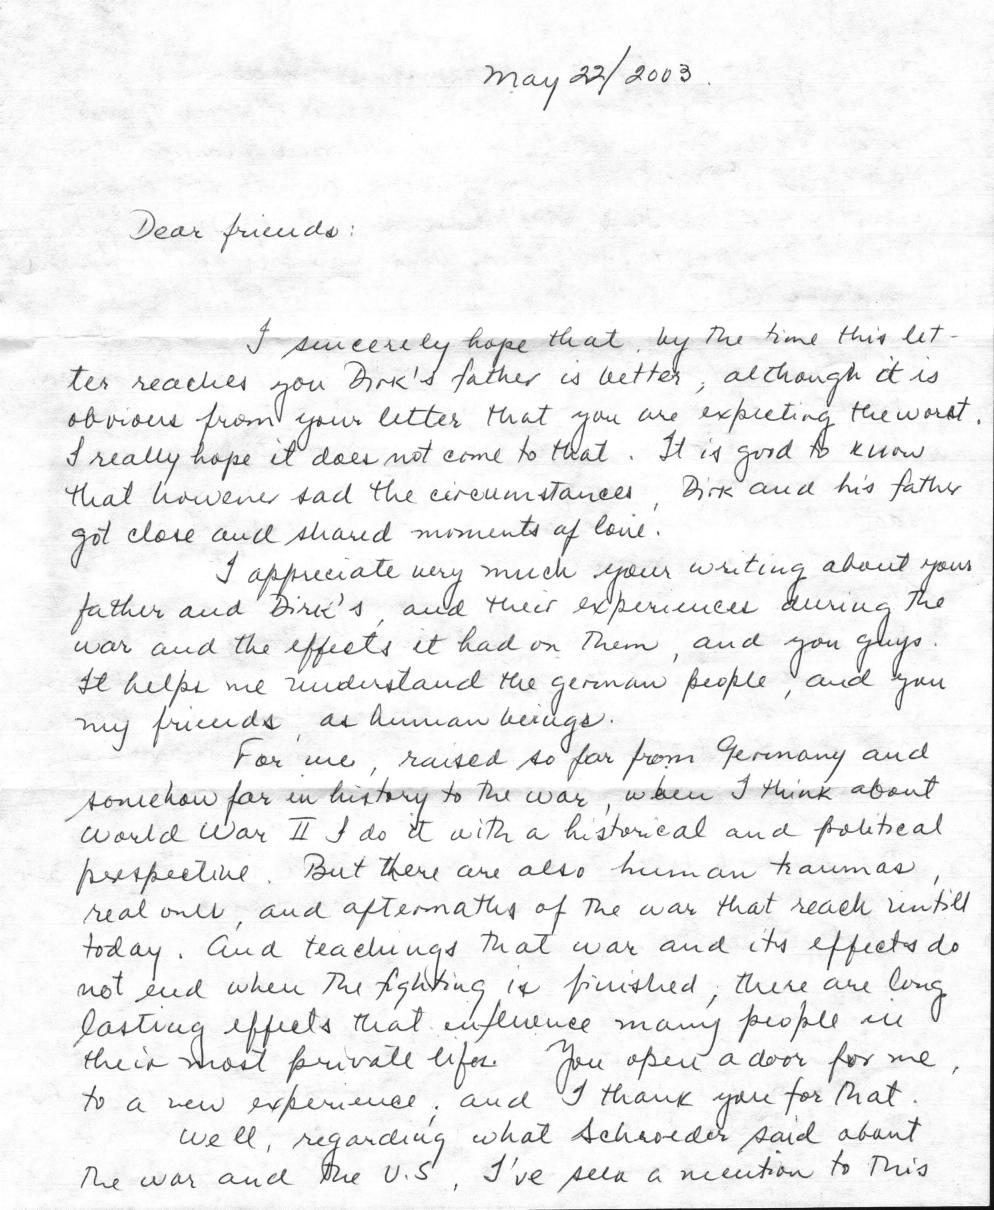 May 22/2003.
Dear friends:
I sincerely hope that, by the time this let-
ter reaches you Dirk's father is better, although it is
obvious from your letter that you are expecting the worst.
I really hope it does not come to that. It is good to know
that however sad the circumstances, Dirk and his father
got close and shared moments of love.
I appreciate very much your writing about your
father and Dirk's, and their experiences during the
war and the effects it had on them, and you guys.
It helps me understand the german people, and you
my friends, as human beings.
For me, raised so far from Germany and
somehow far in history to the war, when I think about
World War II I do it with a historical and political
perspective. But there are also human traumas,
real ones, and aftermaths of the war that reach untill
today. And teachings that war and its effects do
not end when the fighting is finished, there are long
lasting effects that influence many people in
their most private lifes. You open a door for me,
to a new experience, and I thank you for that.
Well, regarding what Schroeder said about
the war and the U.S, I've seen a mention to this